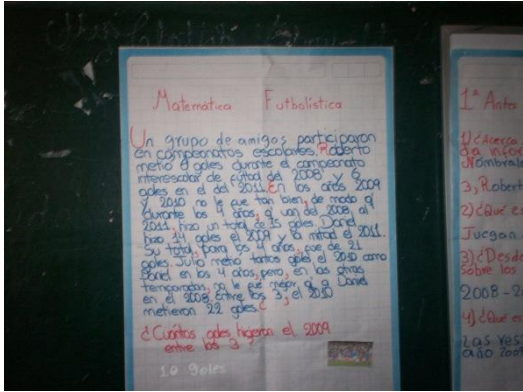 Matemática Futbolística
Un grupo de amigos participaron
en campeonatos escolares. Roberto
metió 8 goles durante el campeonato
interescolar de futbol del 2008 y 6
goles en el del 2011. En los años 2009
y 2010 no le fue tan bien, de modo q'
durante los 4 años, q' van del 2008 al
2011, hizo un total de 15 goles. Daniel
hizo 14 goles el 2009 y la mitad el 2011.
Su total, para los 4 años, fue de 21
goles. Julio metió tantos goles el 2010 como
Daniel en los 4 años, pero, en las otras
temporadas, no le fue mejor q' a Daniel
en el 2008. Entre los 3, el 2010
metieron 22 goles.
¿Cuántos goles hicieron el 2009
entre los 3
goles
1º Antes
1) ¿Acerca
da infor
Nombrale
3, Robert
2) ¿Qué es
Juegan
3) ¿Desde
sobre los
2008-2
4) ¿Qué es
Las res
año 200